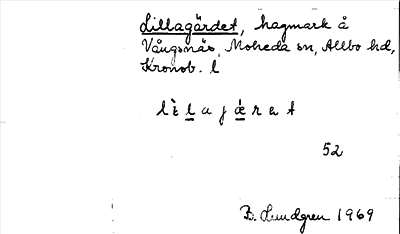 Lillagärdet, hagmark å
Vångsnäs, Moheda sn, Allbo hd,
Kronob. l
52
B. Lundgren 1969